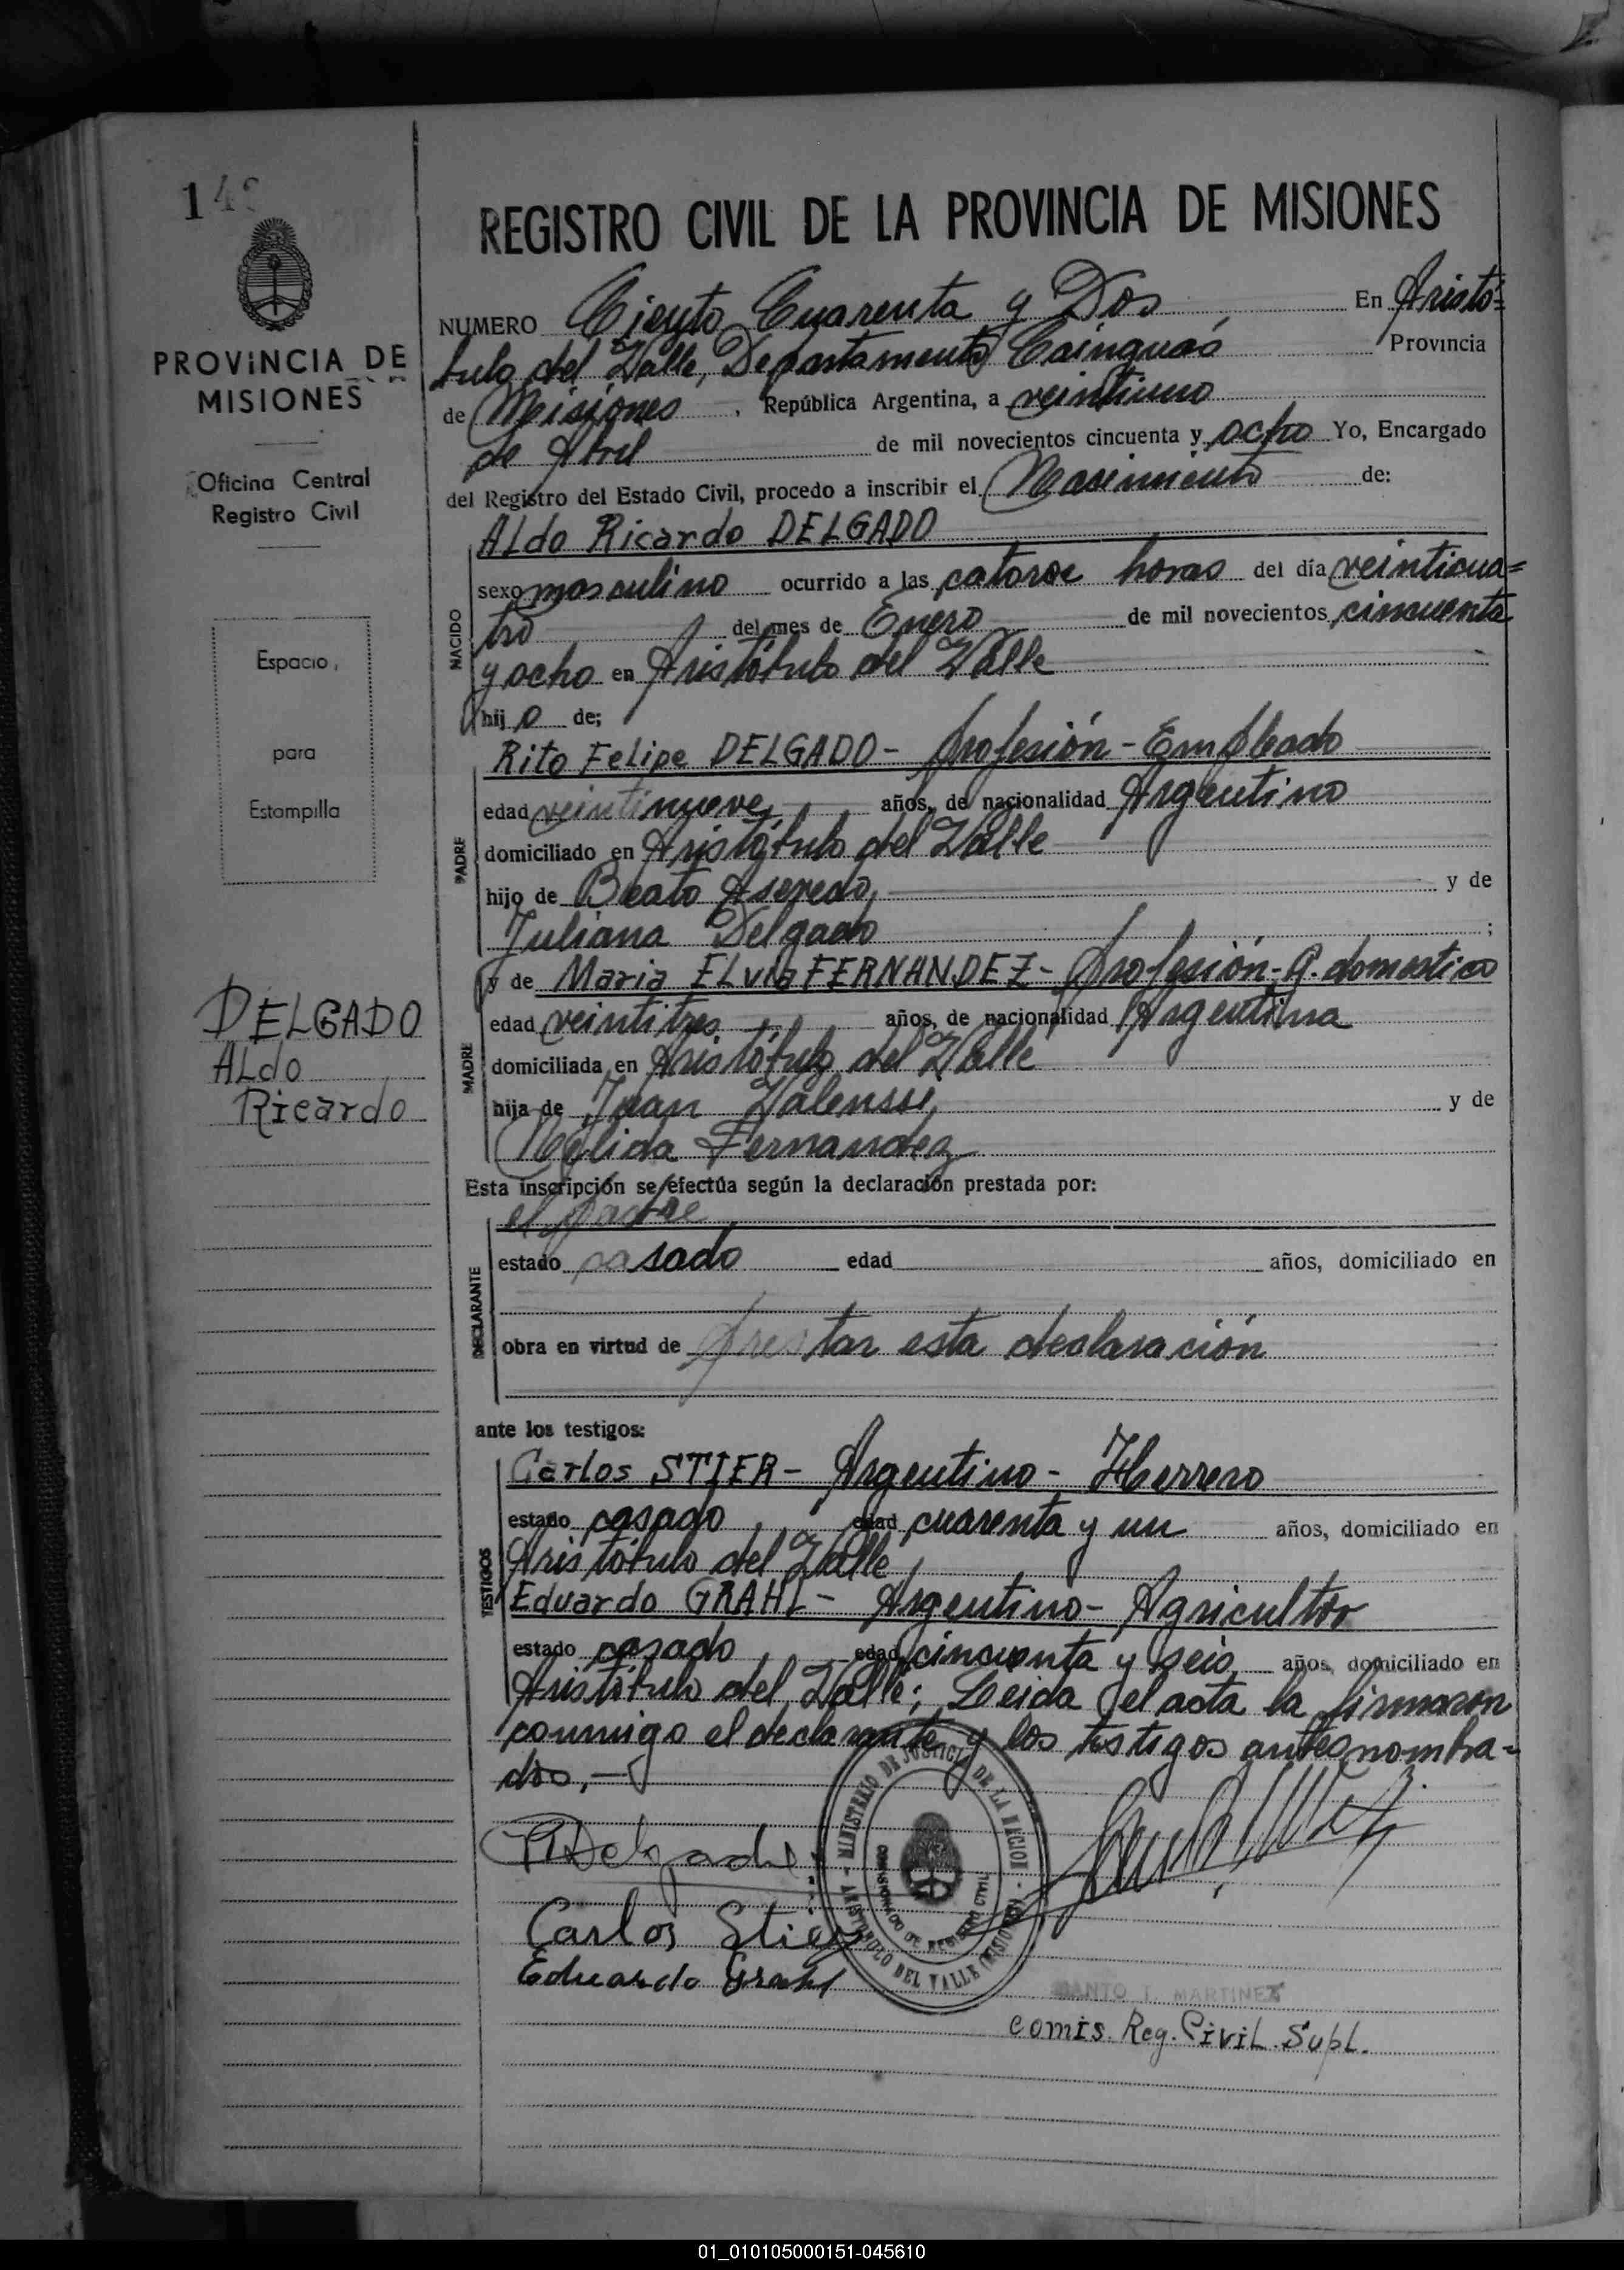 14
REGISTRO CIVIL DE LA PROVINCIA DE MISIONES
PROVINCIA DE
MISIONES
Oficina Central
Registro Civil
Espacio
para
Estampilla
DELGADO
ALdo
Ricardo
NUMERO Ciento Cuarenta y Dos, En Aristó-
tulo del Valle, Departamento Cainguás Provincia
de Misiones, República Argentina, a veintiuno
de Abril de mil novecientos cincuenta y ocho Yo, Encargado
del Registro del Estado Civil, procedo a inscribir el Nacimiento de:
ALdo Ricardo DELGADO
NACIDO
sexo masculino ocurrido a las catorce horas del día veinticua=
tro del mes de Enero de mil novecientos cincuenta
y ocho en Aristóbulo del Valle
hijo de;
Rito Felipe DELGADO- profesión - Empleado
PADRE
edad veintinueve, años, de nacionalidad Argentino
domiciliado en Aristóbulo del Valle
hijo de Beato Asevedo, y de
Juliana Delgado ;
y de Maria ELvia FERNANDEZ- profesión- Q. domestico
MADRE
edad veintitres años, de nacionalidad Argentina
domiciliada en Aristóbulo del Valle
hija de Juan y de
Nélida Fernandez
Esta inscripción se efectúa según la declaración prestada por:
el padre
DECLARANTE
estado casado edad años, domiciliado en
obra en virtud de prestar esta declaración
ante los testigos:
TESTIGOS
Carlos STIER- Argentino- Herrero
estado casado, edad cuarenta y un años, domiciliado en
Aristóbulo del Valle,
Eduardo GRAHL- Argentino- Agricultor
estado casado, edad cincuenta y seis, años, domiciliado en
Aristóbulo del Valle; Leida el acta la firmaron
conmigo el declarante y los testigos antes nombra=
dos,-
Delgado
Carlos Stier
Eduardo Grahl
MINISTERIO DE JUSTICIA DE LA NACION
ARISTOBULO DEL VALLE (MISIONES)
DE REGISTRO CIVIL
SANTO I. MARTINEZ
comis. Reg. CiviL. SupL.
01_010105000151-045610